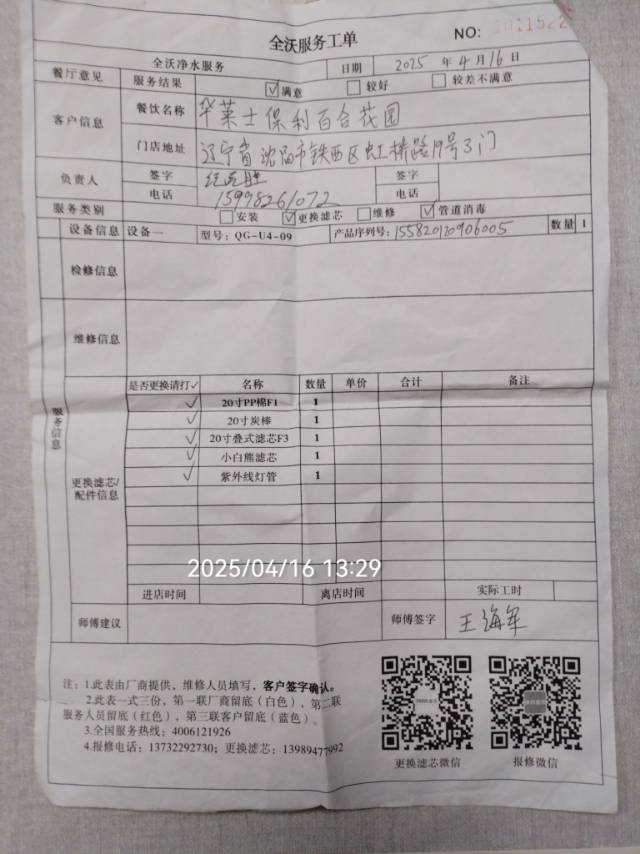 全沃服务工单
NO: 1011522
全沃净水服务 日期 2025 年 4 月 16 日
餐厅意见 服务结果 ☑满意 □较好 □较差不满意
客户信息 餐饮名称 华莱士保利百合花园
门店地址 辽宁省沈阳市铁西区虹桥路19号3门
负责人 签字 签字
电话 15998261072 电话
服务类别 □安装 ☑更换滤芯 □维修 ☑管道消毒
设备信息 设备一 型号：QG-U4-09 产品序列号：155820120906005 数量 1
检修信息
维修信息
服务信息
更换滤芯/配件信息
是否更换请打√ 名称 数量 单价 合计 备注
√ 20寸PP棉F1 1
√ 20寸炭棒 1
√ 20寸叠式滤芯F3 1
√ 小白熊滤芯 1
√ 紫外线灯管 1
2025/04/16 13:29
进店时间 离店时间 实际工时
师傅建议 师傅签字 王海军
注：1.此表由厂商提供，维修人员填写，客户签字确认。
2.此表一式三份，第一联厂商留底（白色），第二联
服务人员留底（红色），第三联客户留底（蓝色）。
3.全国服务热线：4006121926
4.报修电话：13732292730；更换滤芯：13989477992
更换滤芯微信 报修微信